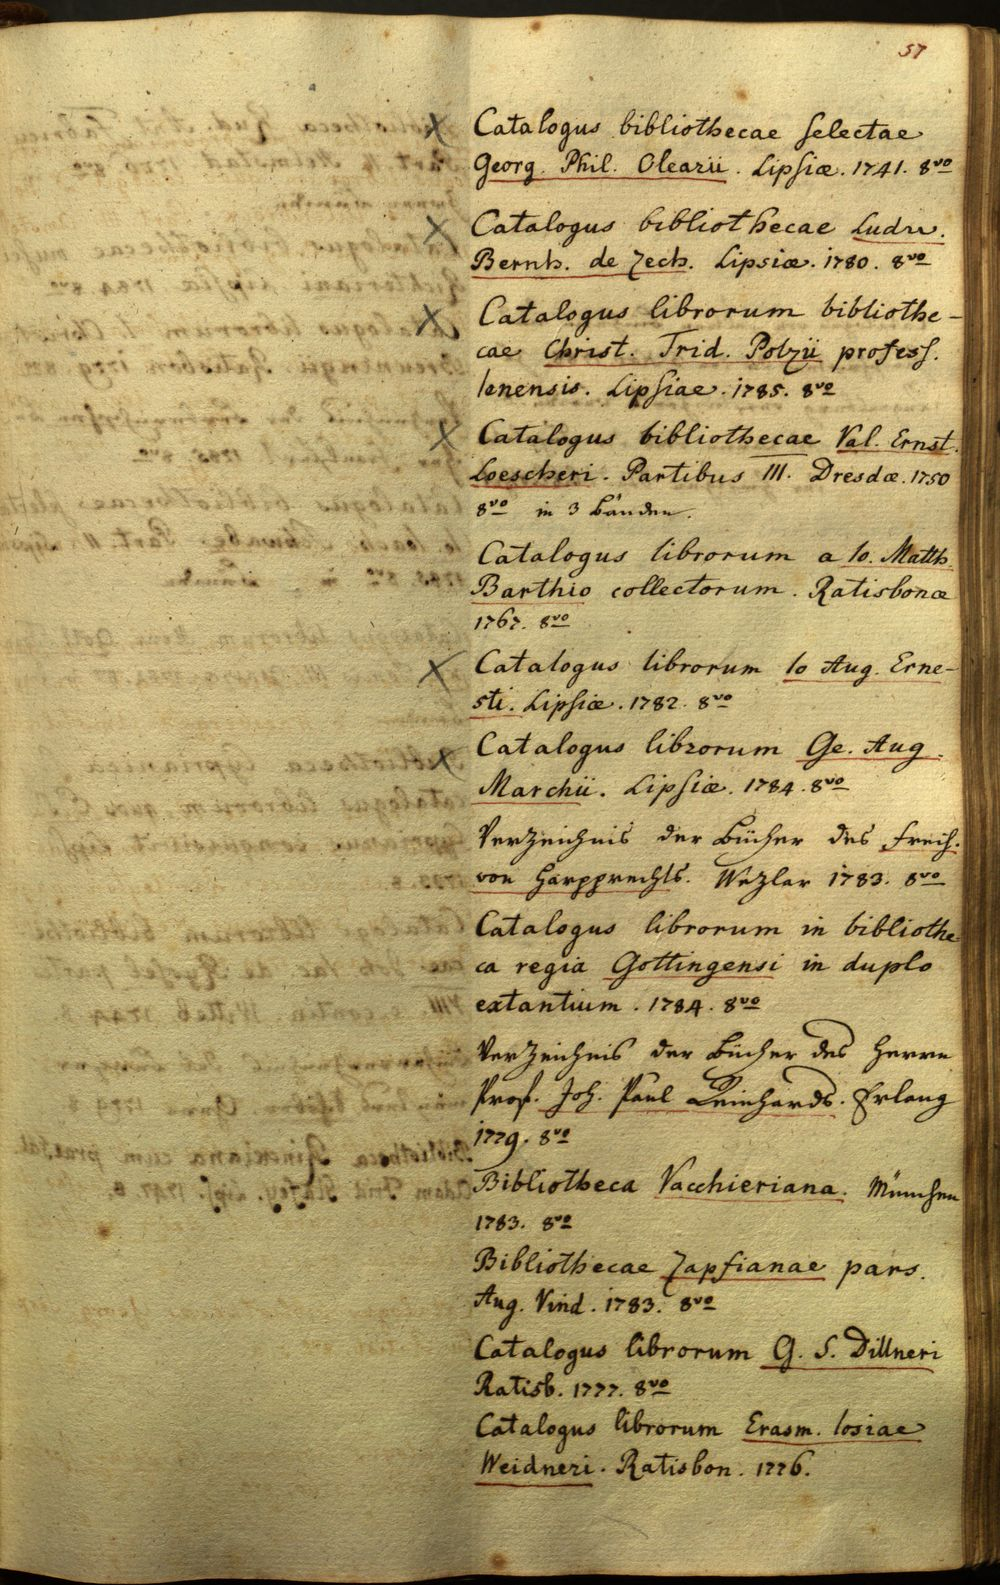 57
Catalogus bibliothecae selectae
Georg. Phil. Olearii. Lipsiæ. 1741. 8vo
Catalogus bibliothecae Ludov.
Bernh. de Zech. Lipsiæ. 1780. 8vo
Catalogus librorum bibliothe-
cae Christ. Frid. Polzii profess.
Ienensis. Lipsiae. 1785. 8vo
Catalogus bibliothecae Val. Ernst.
Loescheri. Partibus III. Dresdæ. 1750
8vo in 3 Bänden.
Catalogus librorum a Io. Matth.
Barthio collectorum. Ratisbonæ
1767. 8vo
Catalogus librorum Io Aug. Erne-
sti. Lipsiæ. 1782. 8vo
Catalogus librorum Ge. Aug.
Marchii. Lipsiæ. 1784. 8vo
Verzeichnis der Bücher des Freih.
von Harpprechts. Wezlar 1783. 8vo
Catalogus librorum in bibliothe
ca regia Gottingensi in duplo
extantium. 1784. 8vo
Verzeichnis der Bücher des Herrn
Prof. Joh. Paul Reinhards. Erlang
1779. 8vo
Bibliotheca Vacchieriana. München
1783. 8vo
Bibliothecae Zapfianae pars.
Aug. Vind. 1783. 8vo
Catalogus librorum G. S. Dillneri
Ratisb. 1777. 8vo
Catalogus librorum Erasm. Iosiae
Weidneri. Ratisbon. 1776.